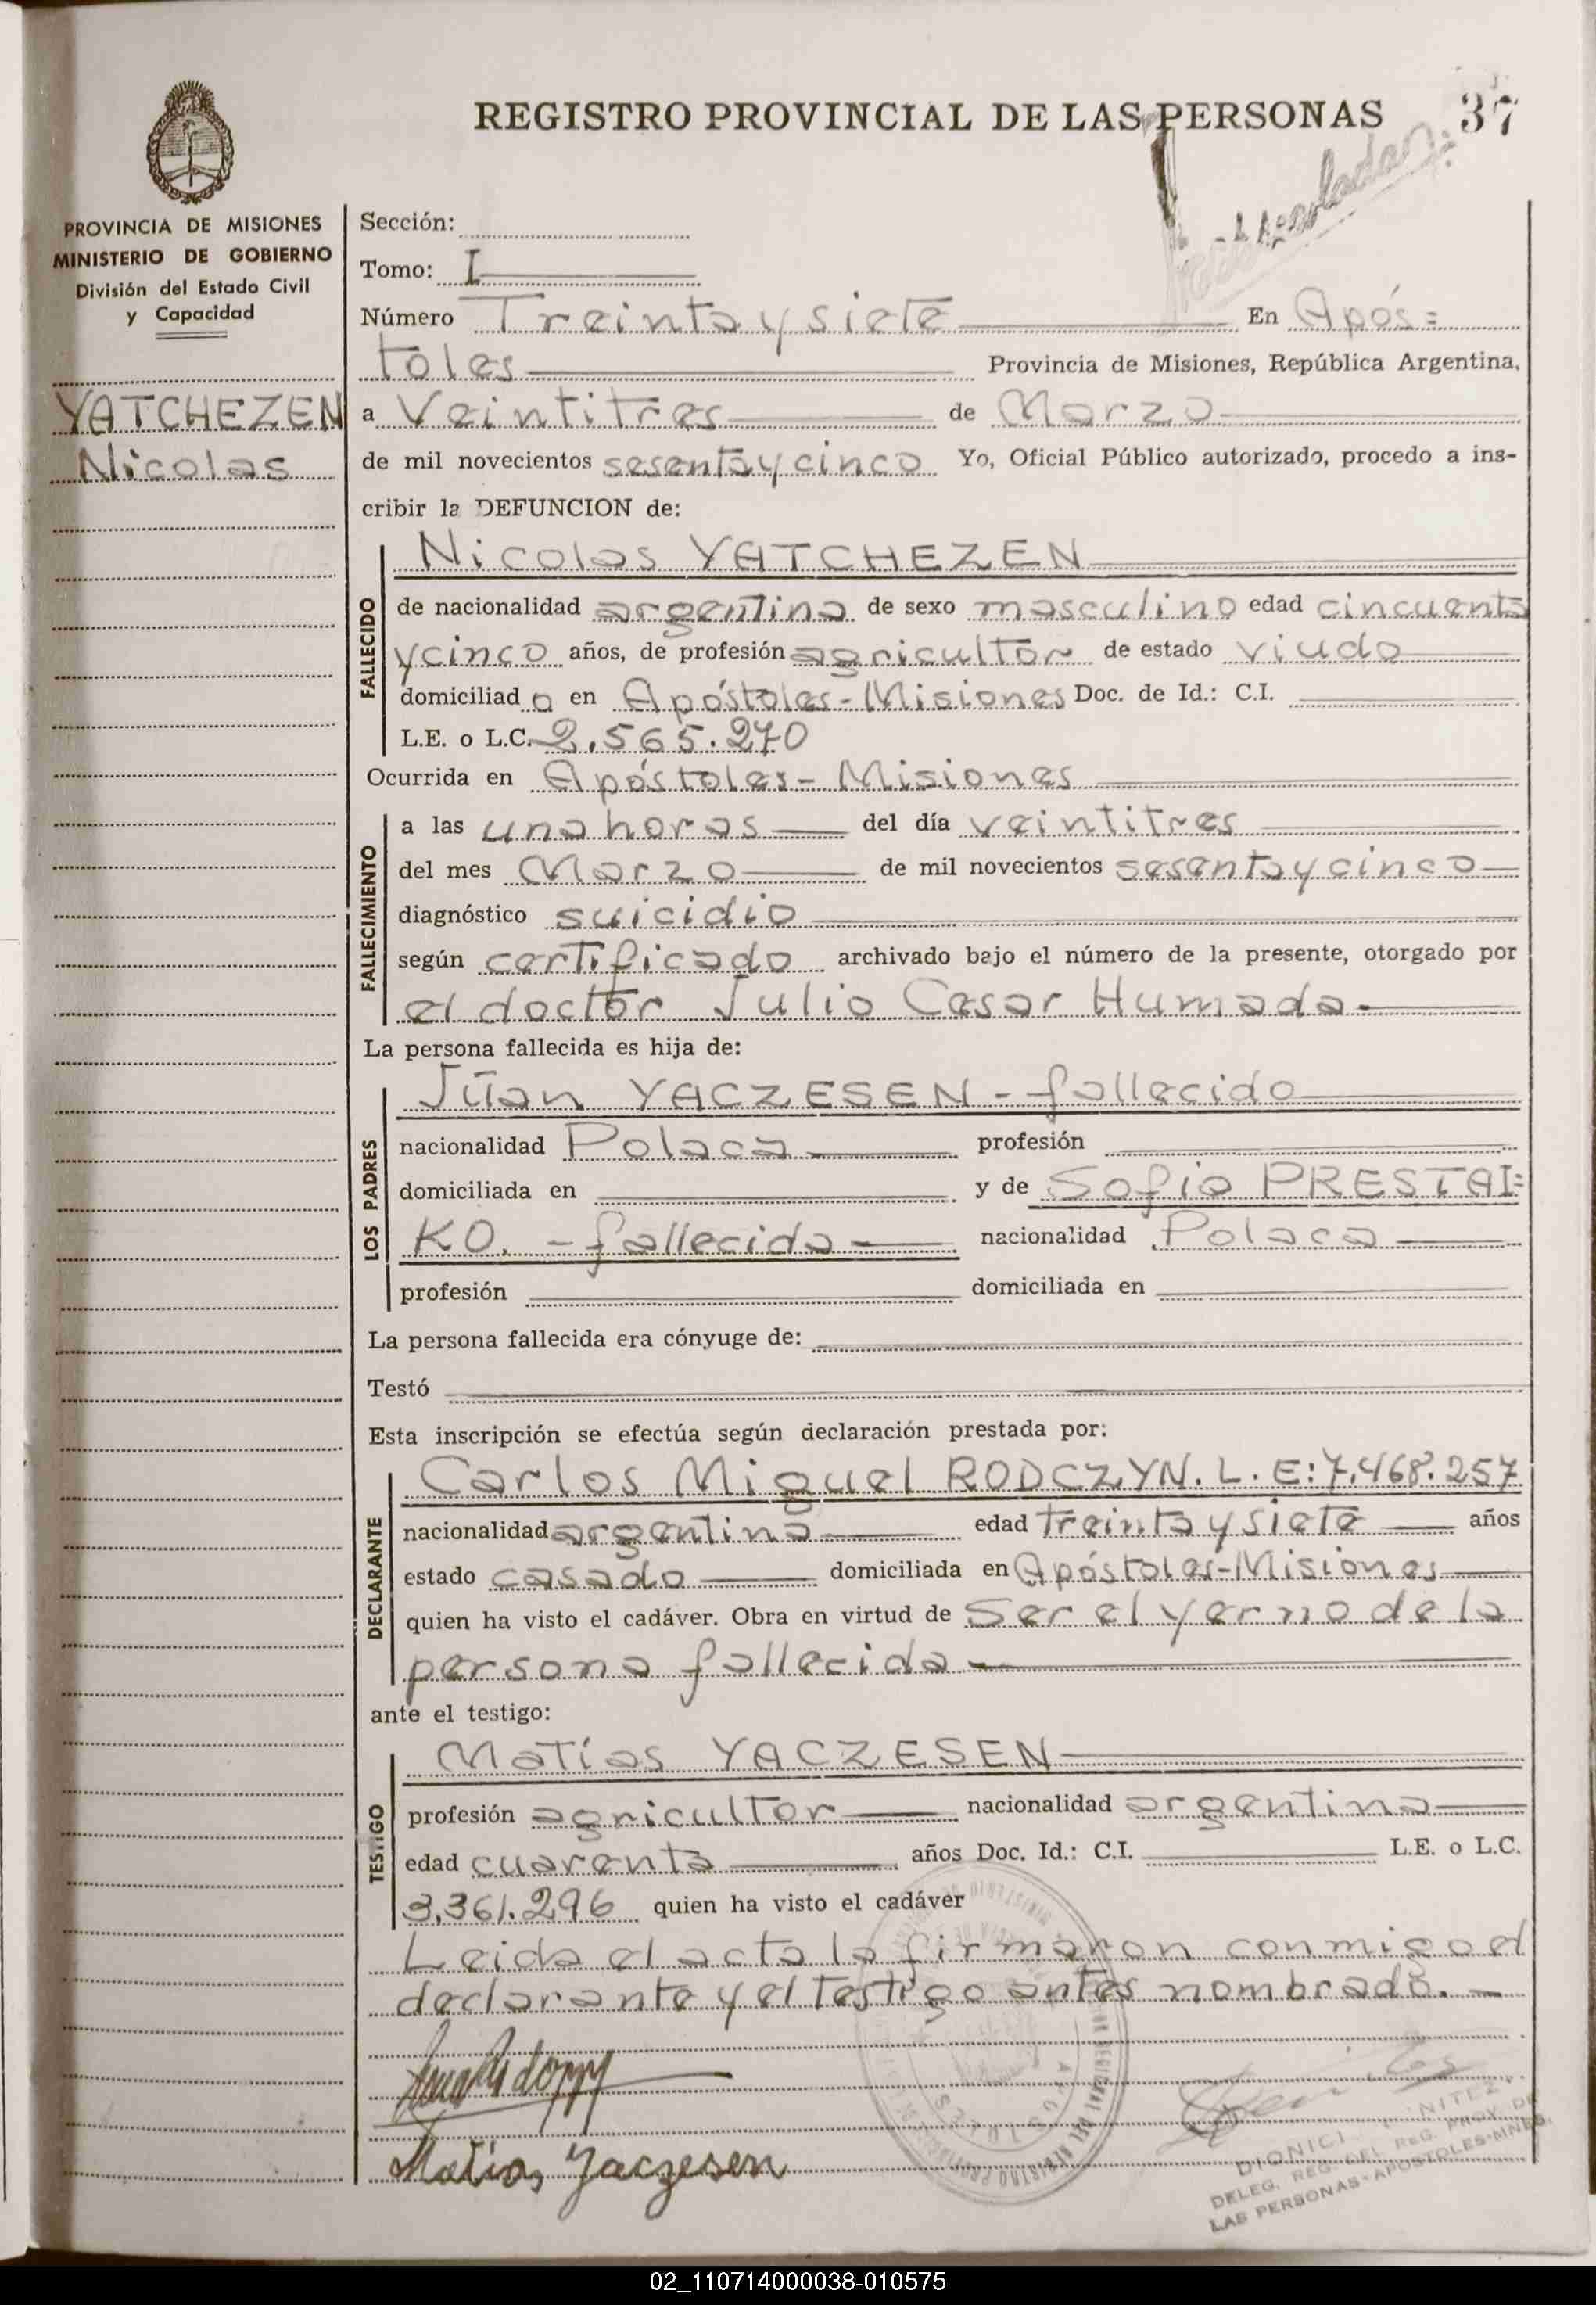 REGISTRO PROVINCIAL DE LAS PERSONAS 37
PROVINCIA DE MISIONES
MINISTERIO DE GOBIERNO
División del Estado Civil
y Capacidad
YATCHEZEN
Nicolas
Sección:
Tomo: I
Número Treinta y siete En Após=
toles Provincia de Misiones, República Argentina,
a Veintitres de Marzo
de mil novecientos sesenta y cinco Yo, Oficial Público autorizado, procedo a ins-
cribir la DEFUNCION de:
FALLECIDO
Nicolas YATCHEZEN
de nacionalidad argentina de sexo masculino edad cincuenta
y cinco años, de profesión agricultor de estado viudo
domiciliad o en Apóstoles-Misiones Doc. de Id.: C.I.
L.E. o L.C. 2.565.270
Ocurrida en Apóstoles- Misiones
FALLECIMIENTO
a las una horas del día veintitres
del mes Marzo de mil novecientos sesenta y cinco
diagnóstico suicidio
según certificado archivado bajo el número de la presente, otorgado por
el doctor Julio Cesar Humada.
La persona fallecida es hija de:
LOS PADRES
Júan YACZESEN - fallecido
nacionalidad Polaca profesión
domiciliada en y de Sofia PRESTAI=
KO. - fallecida nacionalidad Polaca
profesión domiciliada en
La persona fallecida era cónyuge de:
Testó
Esta inscripción se efectúa según declaración prestada por:
DECLARANTE
Carlos Miguel RODCZYN. L. E: 7.468.257
nacionalidad argentina edad treinta y siete años
estado casado domiciliada en Apóstoles-Misiones
quien ha visto el cadáver. Obra en virtud de ser el yerno de la
persona fallecida
ante el testigo:
TESTIGO
Matías YACZESEN
profesión agricultor nacionalidad argentina
edad cuarenta años Doc. Id.: C.I. L.E. o L.C.
3.361.296 quien ha visto el cadáver
Leida el acta la firmaron conmigo el
declarante y el testigo antes nombrado.
Matias Yaczesen
DELEG. REG. DEL REG. PROV. DE
LAS PERSONAS-APOSTOLES-MNES.
02_110714000038-010575